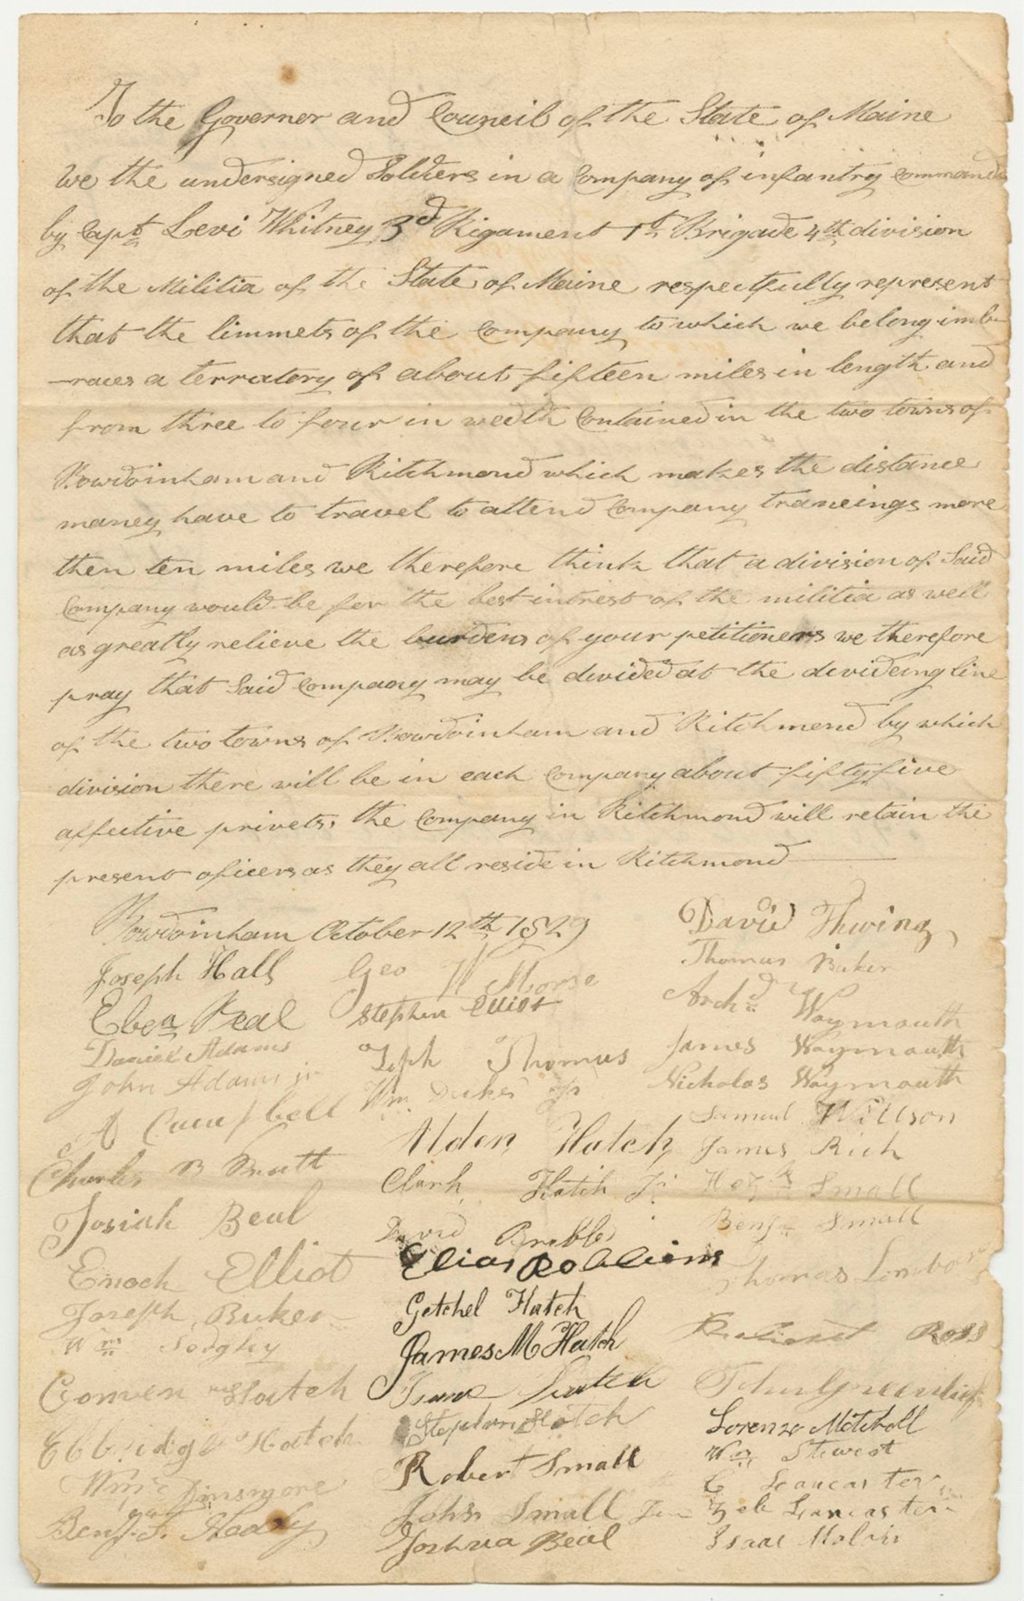 To the Governor and Council of the State of Maine
We the undersigned Soldiers in a Company of infantry Command
by Capt Levi Whitney 3d Rigament 1st Brigade 4th division
of the Militia of the State of Maine respectfully represent
that the limmets of the Company to which we belong imbr
-races a terratory of about fifteen miles in length and
from three to four in wedth Contained in the two towns of
Bowdoinham and Ritchmond which makes the distance
maney have to travel to attend Company traneings more
then ten miles we therefore think that a division of Said
Company would be for the best intrest of the militia as well
as greatly relieve the burdens of your petitioners we therefore
pray that Said Company may be divided at the divideing line
of the two towns of Bowdoinham and Ritchmond by which
division there will be in each Company about fifty five
affective privets, the Company in Ritchmond will retain the
present oficers as they all reside in Ritchmond
Bowdoinham October 12th 1829
Joseph Hall
Eben Beal
Daniel Adams
John Adams jr
A Campbell
Charles B Smatt
Josiah Beal
Enoch Elliot
Joseph Buker
Wm
Gowen Hatch
Hatch
Wm Dinsmore
Benj. Handy
Geo W Morse
Stephen Elliot
Joph Thomas
Wm Jr
Alden Hatch
Clark Hatch Jr
David
Elias Robbins
Getchel Hatch
James M Hatch
Isaac Hatch
Stephen Hatch
Robert Small
John Small Jr
Joshua Beal
David Thwing
Thomas Buker
Archd Waymouth
James Waymouth
Nicholas Waymouth
Samuel Willson
James Rich
Small
Benj Small
Thomas
Ross
John
Lorenzo Mitchell
Wm Stewart
E Lancaster
Zeb Lancaster
Isaac